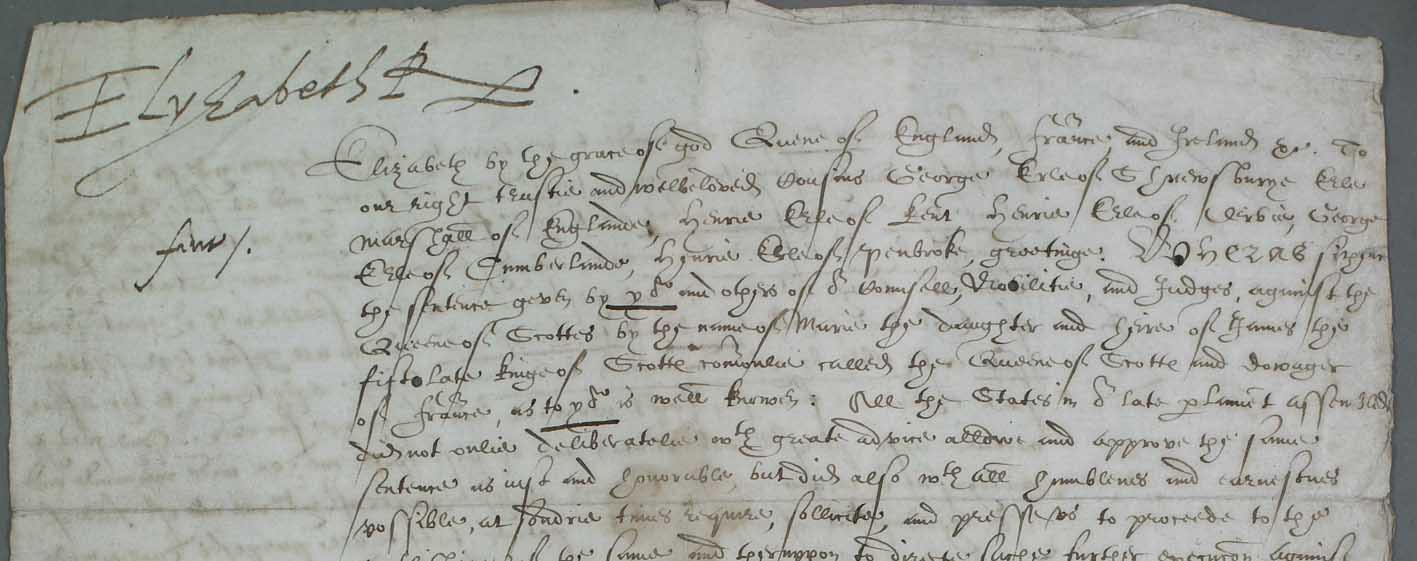 Elyzabeth R
Elizabeth by the grace of god Quene of England, france and Ireland &c. To
our right trustie and welbeloved Cousins George Erle of Shrewsburye Erle
Marshall of Englande, Henrie Erle of Kent Henrie Erle of Derbie, George
Erle of Cumberlande, Henrie Erle of Penbroke, greetinge. Wheras sithence
the sentence geven by yow and others of our Counsell, Nobilitie, and Judges, against the
Queene of Scottes by the name of Marie the daughter and heire of James the
fifte late kinge of Scottes comonlie called the Queene of Scottes and dowager
of france, as to yow is well knowen: All the States in our late parliament assembled
did not onlie deliberatelie wth greate advice allowe and approve the same
sentence as iust and honorable, but did also wth all humblenes and earnestnes
possible, at sondrie times require, sollicite, and presse us to proceede to the
of the same and therupon to directe suche further execution against